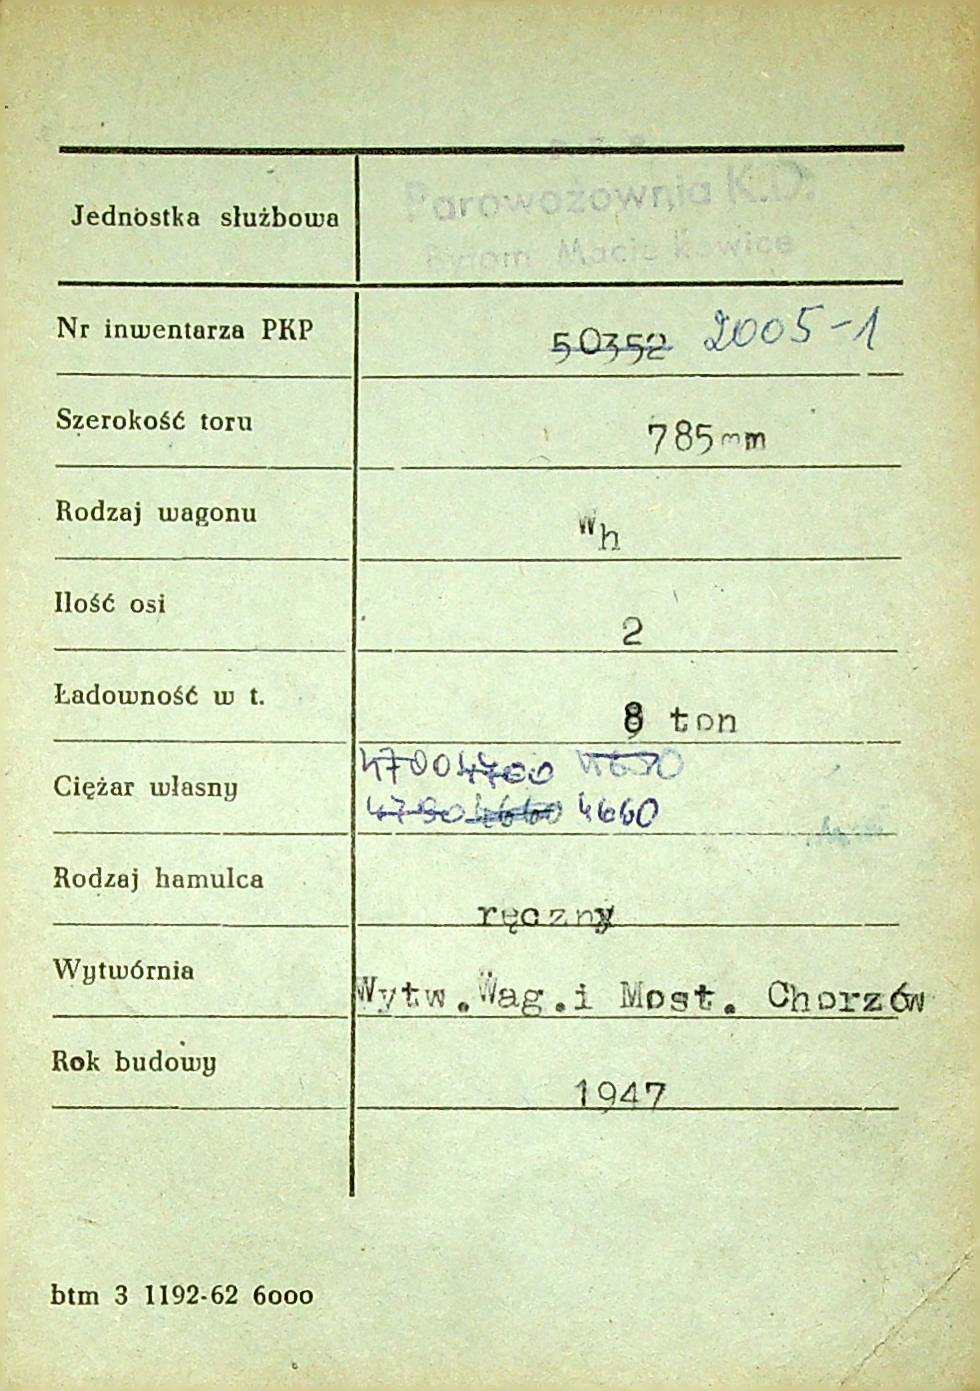 Parowozownia K.D.
Jednostka służbowa
Bytom
Nr inwentarza PKP 50352 2005-1
Szerokość toru 785mm
Rodzaj wagonu Wh
Ilość osi 2
Ładowność w t. 8 ton
Ciężar własny 4700 4700 4650
4790 4660 4660
Rodzaj hamulca ręczny
Wytwórnia Wytw.Wag.i Most. Chorzów
Rok budowy 1947
btm 3 1192-62 6000